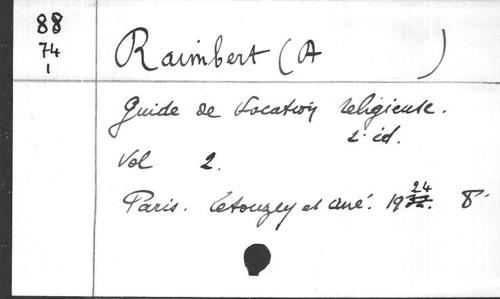 88
74
1
Raimbert (A )
Guide de Vocation religieuse.
2e éd.
Vol 2.
Paris. Letouzey et Ané. 1924. 8°